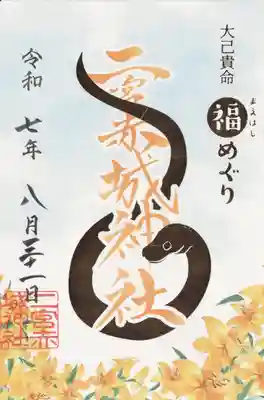 大己貴命
まえばし
福めぐり
二宮赤城神社
令和七年
八月三十一日
二宮赤
城神社